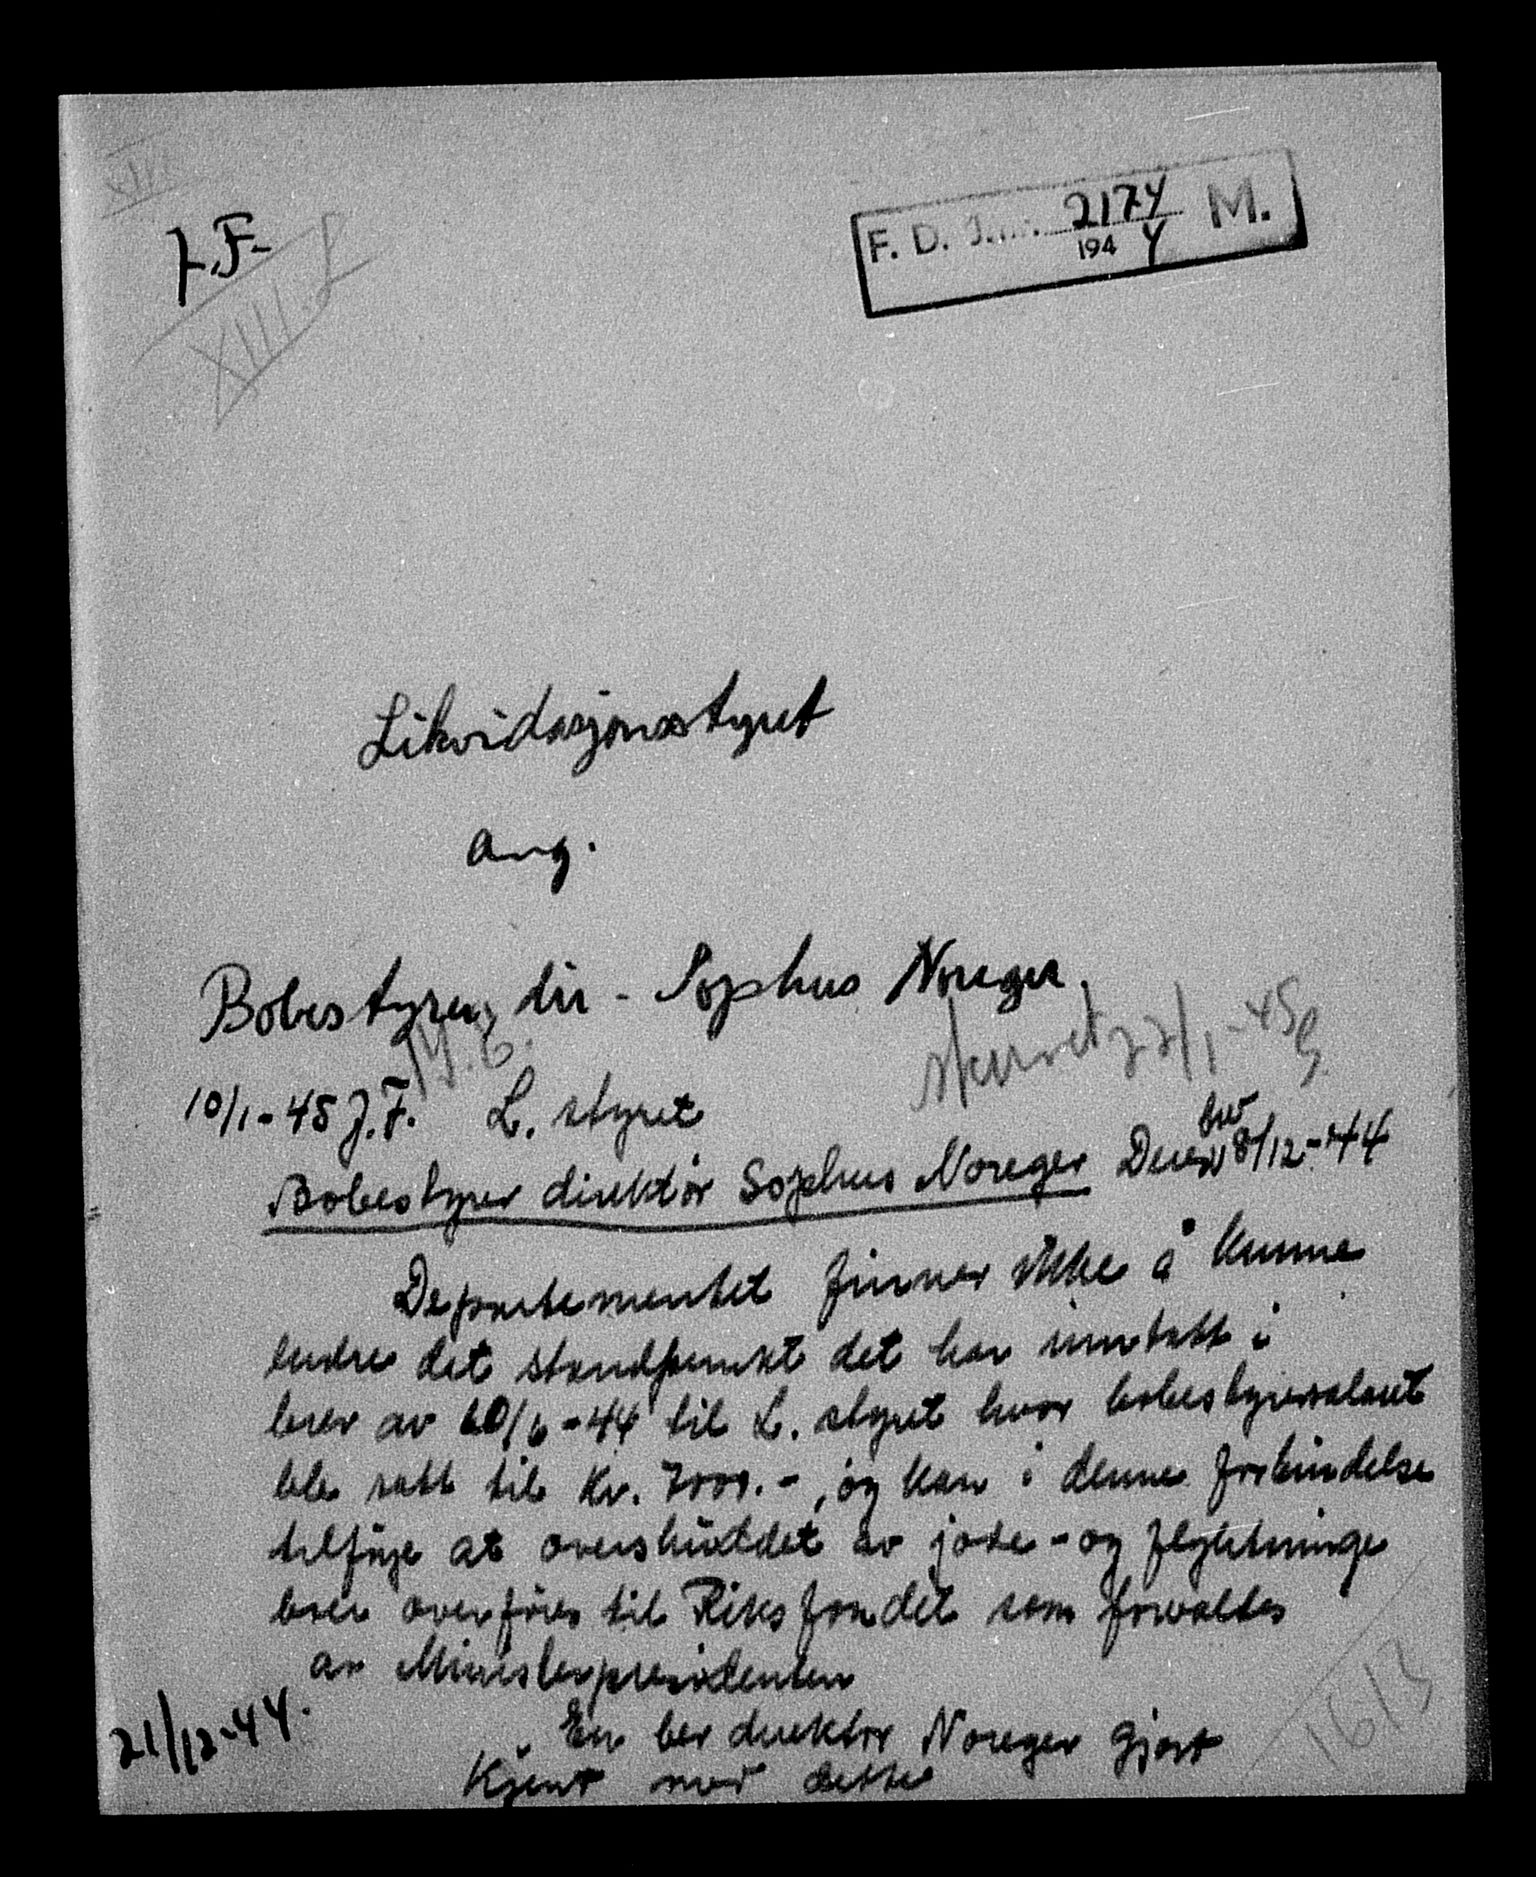 XIII.
J.F.
XIII. 8
F. D. J.nr. 2174 M.
194 4
Likvidasjonsstyret
ang.
Bobestyrer, dir. Sophus Noreger.
skrevet 22/1-45
10/1-45 J.F. L. styret
brev
Bobestyrer direktør Sophus Noreger Deres 8/12-44
Departementet finner ikke å kunne
endre det standpunkt det har inntatt i
brev av 20/6-44 til L. styret hvor bobestyrersalæret
ble satt til kr. 7000.-, og kan i denne forbindelse
tilføye at overskuddet av jøde- og flyktninge
boer overføres til Riksfondet som forvaltes
av Ministerpresidenten
21/12-44.
En ber direktør Noreger gjort
kjent med dette
1613